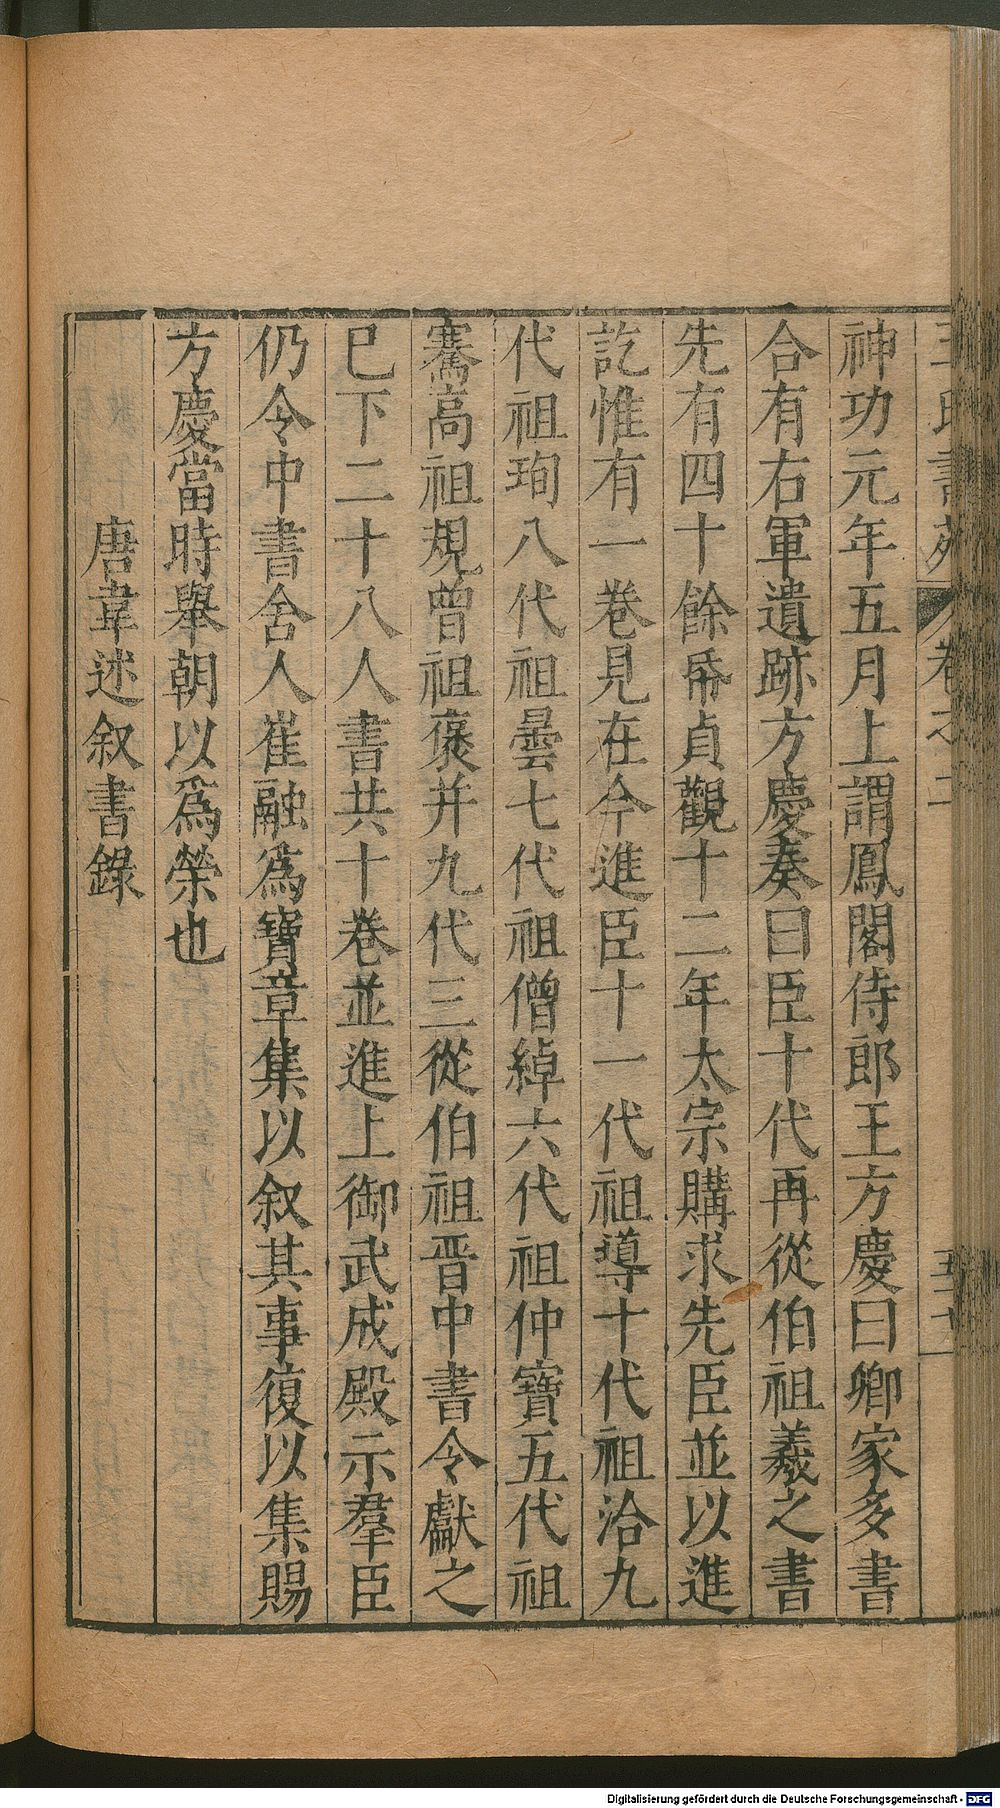 神功元年五月上謂鳳閣侍郎王方慶曰卿家多書
合有右軍遺跡方慶奏曰臣十代再從伯祖羲之書
先有四十餘帋貞觀十二年太宗購求先臣並以進
訖惟有一卷見在今進臣十一代祖導十代祖洽九
代祖珣八代祖曇七代祖僧綽六代祖仲寶五代祖
騫高祖規曾祖褒并九代三從伯祖晋中書令獻之
巳下二十八人書共十卷並進上御武成殿示羣臣
仍令中書舍人崔融爲寶章集以叙其事復以集賜
方慶當時舉朝以爲榮也
唐韋述叙書錄
卷之
Digitalisierung gefördert durch die Deutsche Forschungsgemeinschaft - DFG